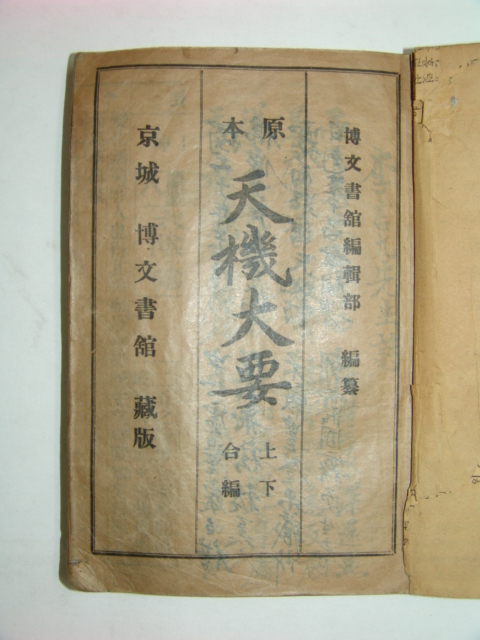 博文書舘編輯部 編纂
原本
天機大要
上下
合編
京城 博文書舘 藏版